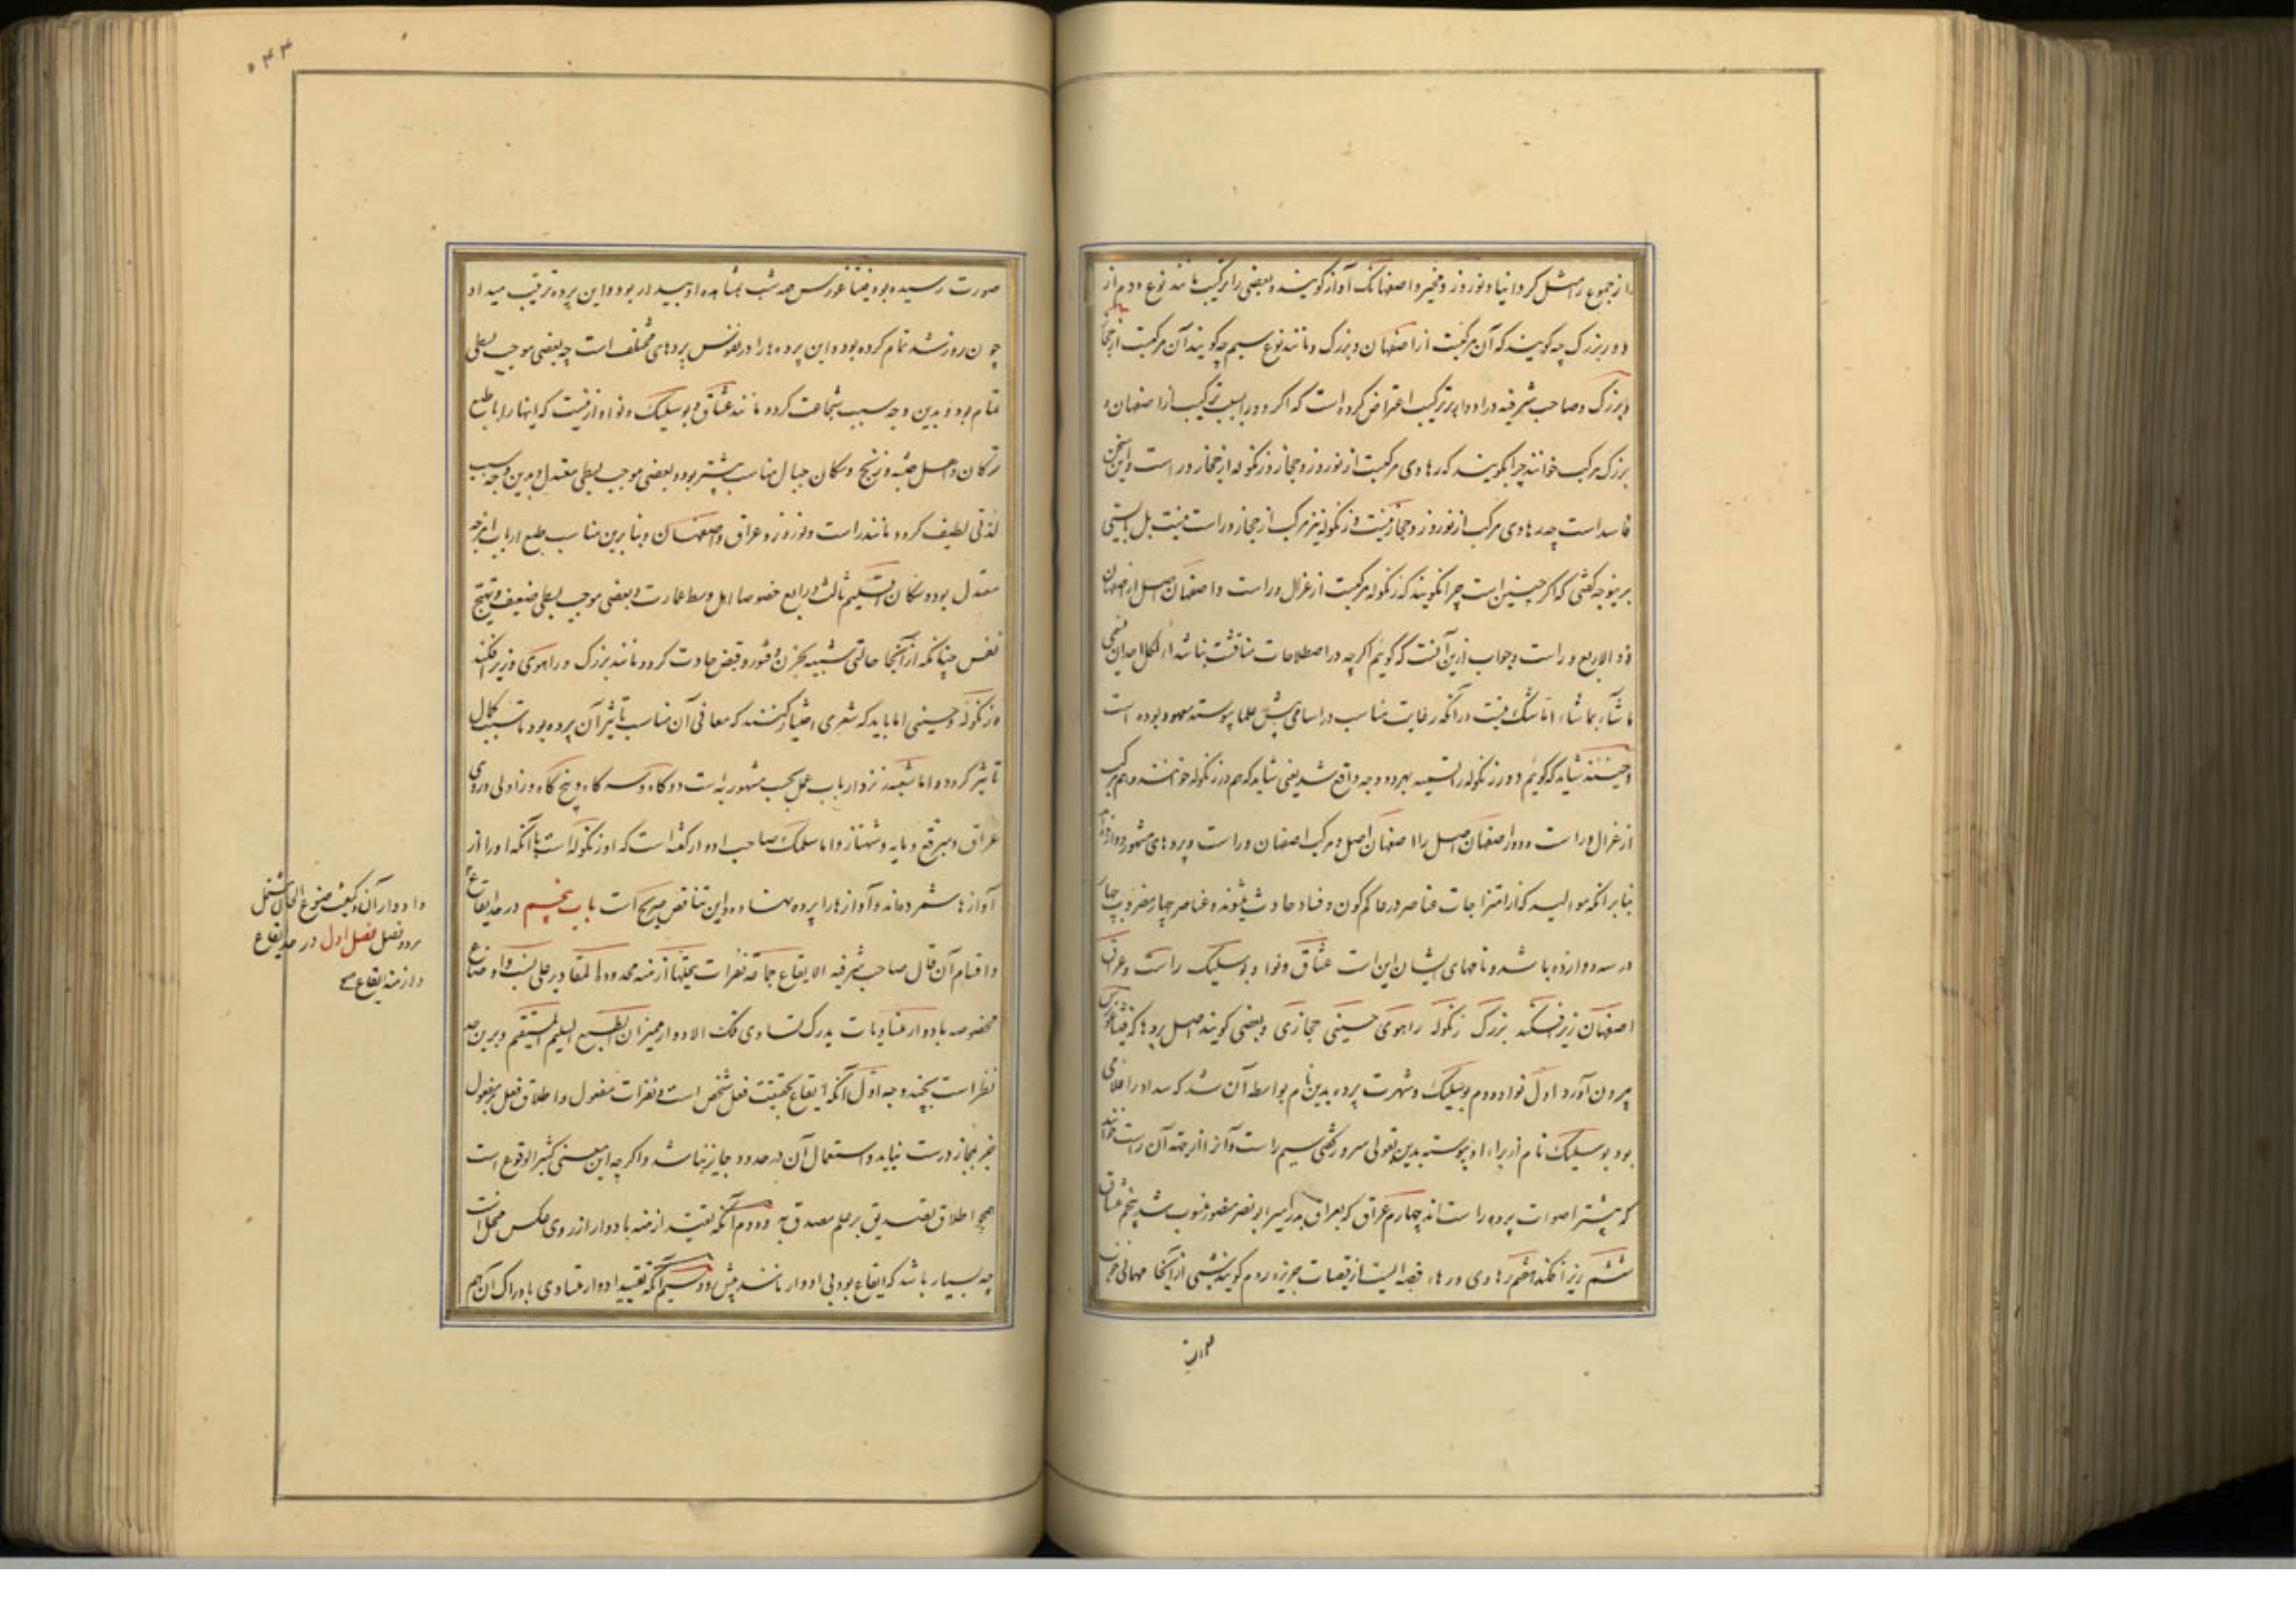 از جموع رامثل کردانیا و نوروز و مخیر و اصفهانک آواز گویند و بعضی را ترکیب مانند نوع دوم از
دور بزرک چه گویند که آن مرکبست از اصفهان و بزرک و مانند نوع سیم چه گویند آن مرکبست از حجاز
و بزرک و صاحب شرفیه در ادوار بر ترکیب اعتراض کرده است که اگر دور را بسبب ترکیب از اصفهان و
بزرک مرکب خوانند چرا نگویند که رهاوی مرکبست از نوروز و حجاز و زنگوله از حجاز و راست و این سخن
فاسد است چه رهاوی مرکب از نوروز و حجاز نیست و زنگوله نیز مرکب از حجاز و راست نیست بل بایستی
برینوجه گفتی که اگر چنین است چرا نگویند که زنگوله مرکبست از غزال و راست و اصفهان اصل از اصفهان
ذو الاربع و راست و جواب ازین آنست که گوئیم اگر چه در اصطلاحات مناقشت نباشد و لکل احد ان یسمی
ما شاء بما شاء اما شک نیست در آنکه رعایت مناسب در اسامی پیش علما پیوسته معهود بوده است
و حینئذ شاید که گوئیم دور زنگوله را تسمیه بهر دو وجه واقع شد یعنی شاید که هم دور زنگوله خوانند و هم مرکب
از غزال و راست و دور اصفهان اصل را اصفهان اصل و مرکب اصفهان و راست و پردهای مشهور دوازده‌اند
بنابر آنکه موالید که از امتزاجات عناصر در عالم کون و فساد حادث میشوند و عناصر چهار مضروب چهار
در سه دوازده باشد و نامهای ایشان این است عشاق و نوا و بوسلیک راست و عراق
اصفهان زیرافکند بزرک زنگوله راهوی حسینی حجازی و بعضی گویند اصل پردها که فیثاغورس
بیرون آورد اول نوا و دوم بوسلیک و شهرت پرده بدین نام بواسطه آن شد که سداد را غلامی
بود بوسلیک نام از برای او پیوسته بدین قول سرود گفتی سیم راست و آنرا از جهة آن راست خوانند
که بیشتر اصوات پرده راست‌اند چهارم عراق که بعراق پدر امیر ابو نصر منصور منسوب شد پنجم عشاق
ششم زیر افکند هفتم رهاوی و رها، قصبه ایست از قصبات جزیره روم گویند شبی از آنجا مهمانی خزان
صورت رسیده بود فیثاغورس همه شب بمشاهده او بیدار بود و این پرده ترتیب میداد
چون روز شد تمام کرده بود و این پرده‌ها را در نفوس پردهای مختلف است چه بعضی موجب بسطی
تمام بود و بدین وجه سبب شجاعت کردد مانند عشاق و بوسلیک و نوا و ازینست که اینها را با طبع
ترکان و اهل حبشه و زنج و سکان جبال مناسب بیشتر بود و بعضی موجب بسطی معتدل و بدین وجه سبب
لذتی لطیف کردد مانند راست و نوروز و عراق و اصفهان و بنابرین مناسب طبع ارباب امزجه
معتدل بود و سکان اقلیم ثالث و رابع خصوصا اهل وسط عمارت و بعضی موجب بسطی ضعیف و تهییج
نفس چنانکه از آنجا حالتی شبیه بحزن و فتور و قبض حادث کردد مانند بزرک و راهوی و زیر افکند
و زنگوله و حسینی اما باید که شعری اختیار کنند که معانی آن مناسب تاثیر آن پرده بود تا سبب کمال
تاثیر کردد و اما شعبه نزد ارباب عمل بحسب مشهور نه است دوگاه و سه گاه و پنج گاه و زاولی و روی
عراق و مبرقع و مایه و شهناز و اما سلمک صاحب ادوار گفته است که او زنگوله است با آنکه او را از
آوازها شمرده‌اند و آوازها را پرده نهاده و این تناقض صریح است باب پنجم در علم ایقاع
و اقسام آن قال صاحب شرفیه الایقاع جماعة نقرات یتخللها ازمنه محدودة المقادیر علی نسب و اوضاع
مخصوصه بادوار متساویات یدرک تساوی تلک الادوار بمیزان الطبع السلیم المستقیم و برین حد
نظر است بچند وجه اول آنکه ایقاع بحقیقت فعل شخص است و نقرات مفعول و اطلاق فعل بر مفعول
جز بمجاز درست نیاید و استعمال آن در حدود جایز نباشد و اگر چه این معنی کثیر الوقوع است
همچو اطلاق تصدیق بر علم مصدق به و دوم آنکه تقیید ازمنه بادوار از روی عکس مختل است
چه بسیار باشد که ایقاع بود بی ادوار مانند پیش رو و سیم آنکه تقیید ادوار متساوی بادراک آن هم
و ادوار آن و کیفیت صوغ الحان مشتمل
بر دو فصل فصل اول در حد ایقاع
و ازمنه ایقاع